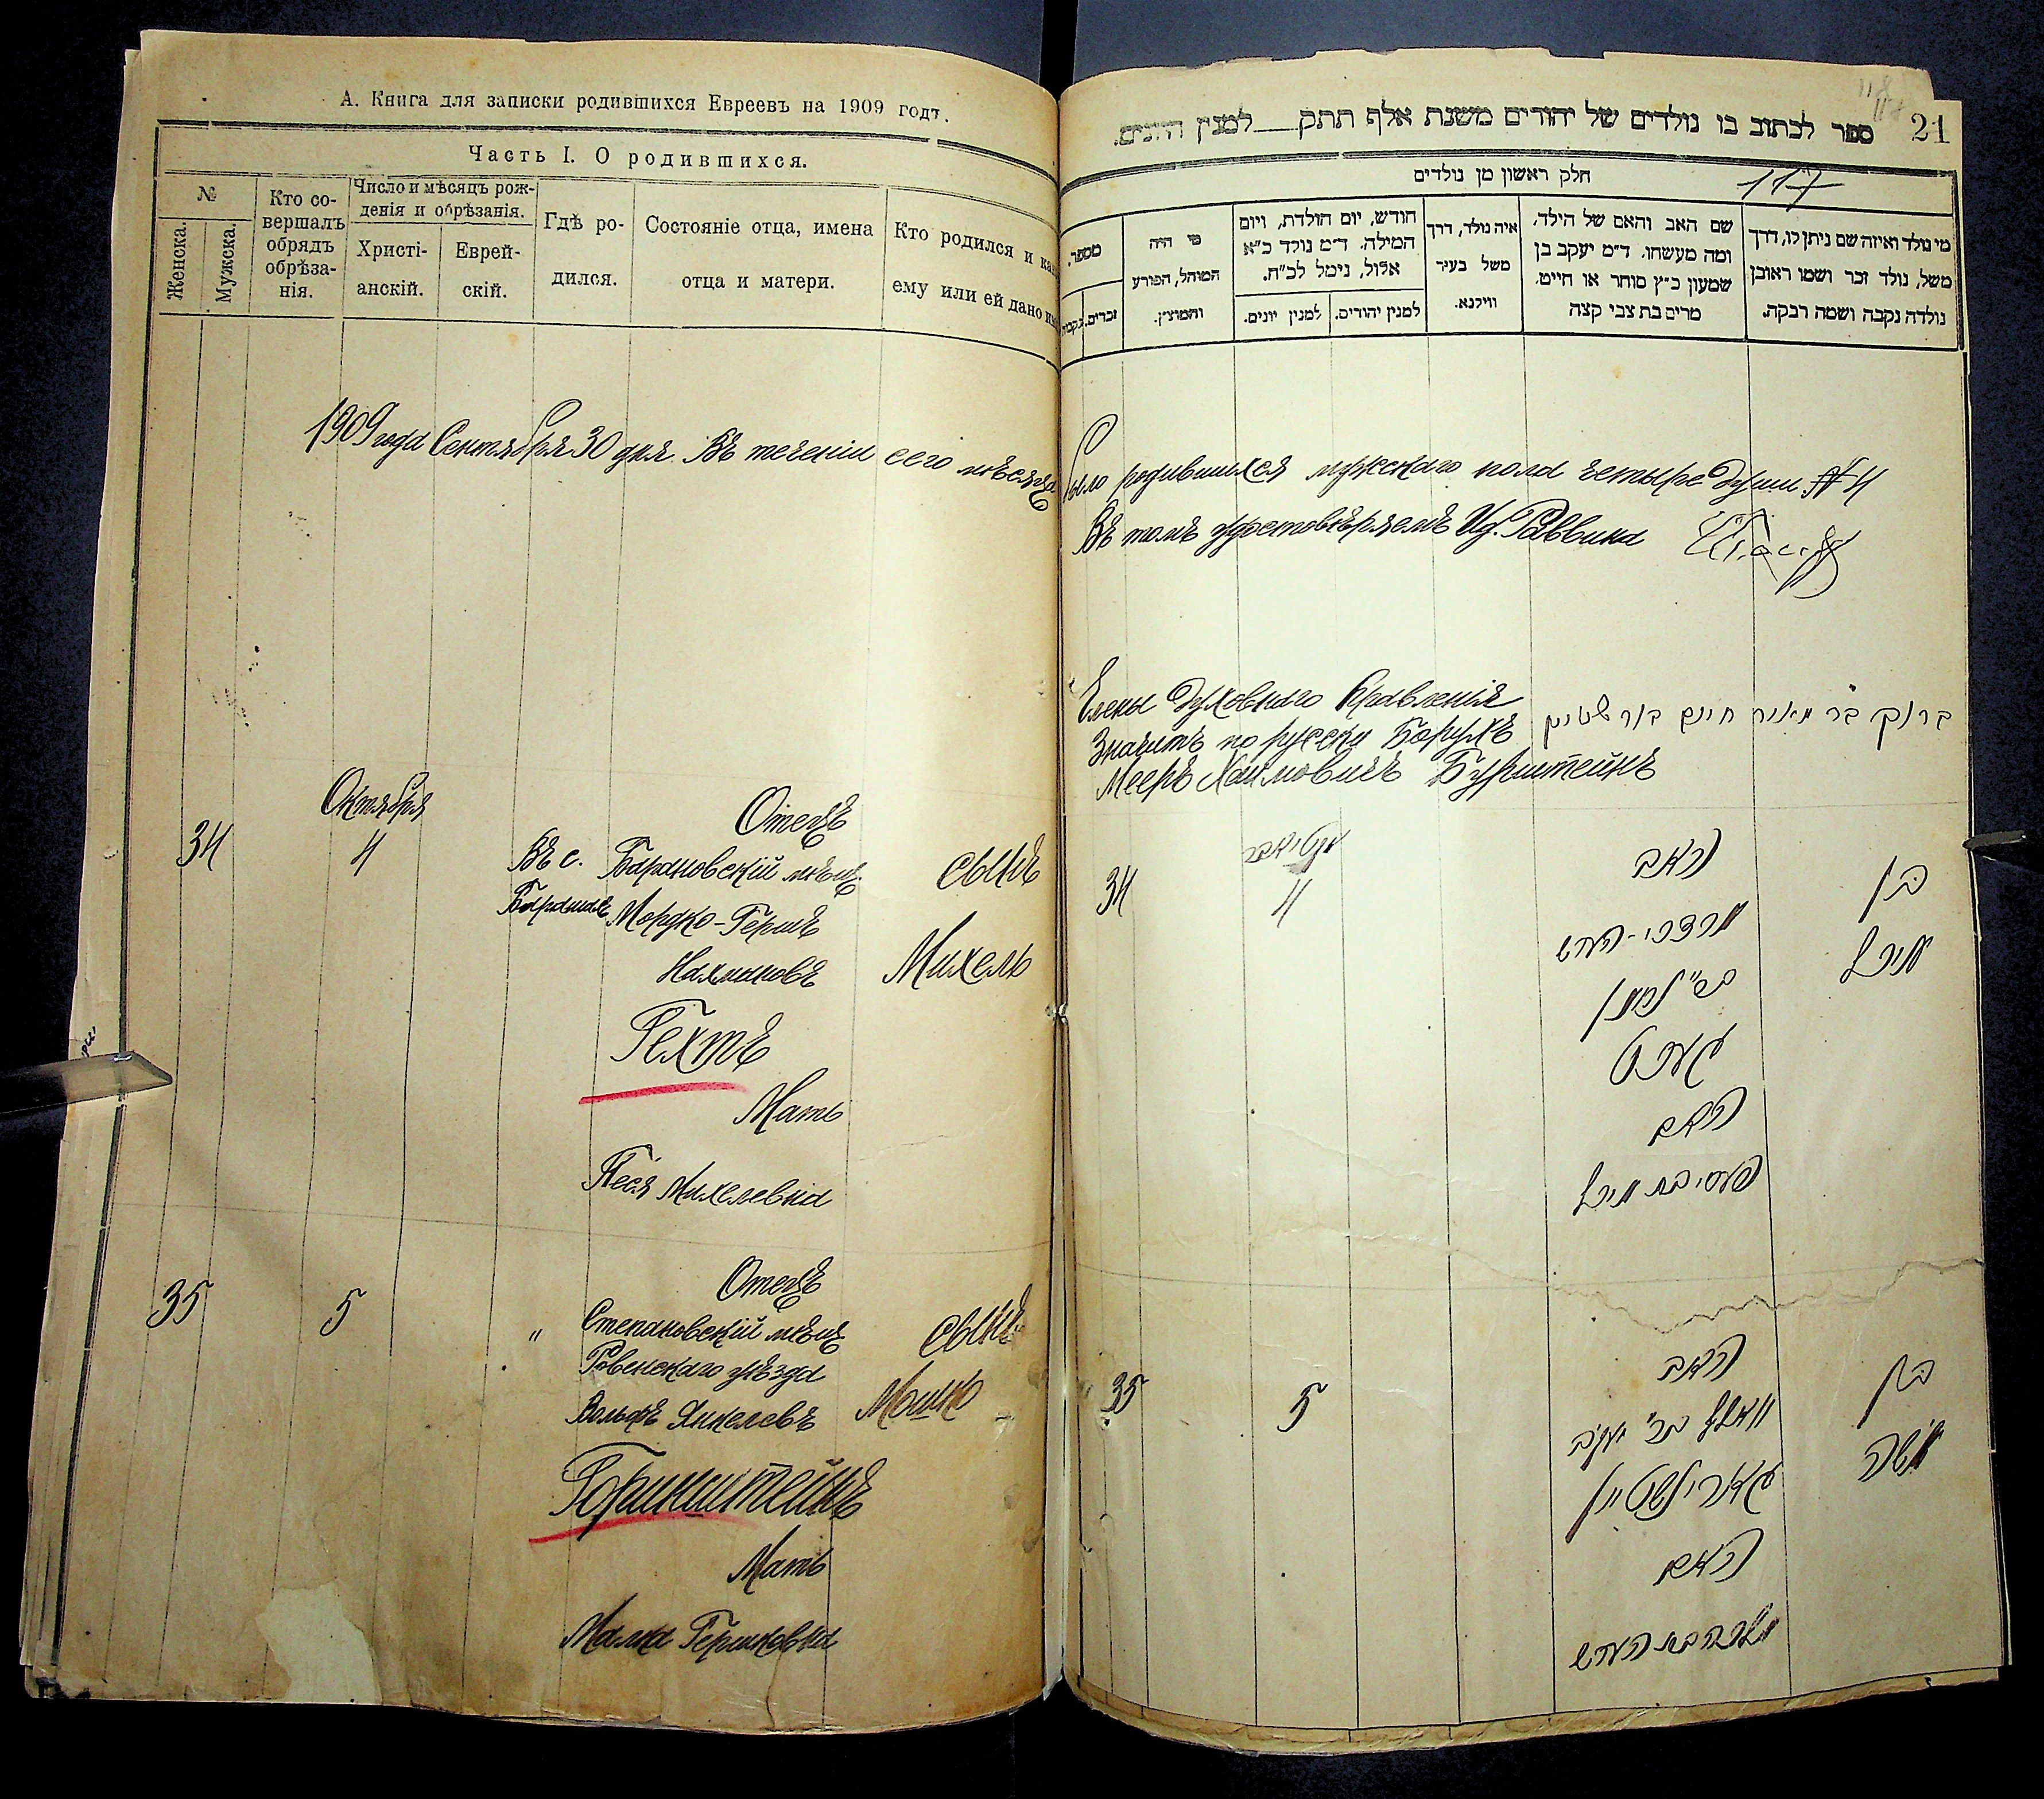 А. Книга для записки родившихся Евреевъ на 1909 годъ.
Часть I. О родившихся.
№
Женска.
Мужска.
Кто со-
вершалъ
обрядъ
обрѣза-
нія.
Число и мѣсяцъ рож-
денія и обрѣзанія.
Христі-
анскій.
Еврей-
скій.
Гдѣ ро-
дился.
Состояніе отца, имена
отца и матери.
Кто родился и как
ему или ей дано им
1909 года Сентября 30 дня. Въ теченіи сего мѣсяца
Октября
34
4
Въ с.
Барашахъ
Отецъ
Барановскій мѣщ.
Мордко-Гершъ
Нахмановъ
Гехтъ
Мать
Песя Михелевна
сынъ
Михель
35
5
"
Отецъ
Степановскій мѣщ.
Ровенскаго уѣзда
Вольфъ Янкелевъ
Горинштейнъ
Мать
Малка Гершковна
сынъ
Мошко
118
21
ספר לכתוב בו נולדים של יהודים משנת אלף תתק__למנין היונים.
חלק ראשון מן נולדים
117
מי נולד ואיזה שם ניתן לו, דרך
משל, נולד זכר ושמו ראובן
נולדה נקבה ושמה רבקה.
שם האב והאם של הילד,
ומה מעשהו. ד״מ יעקב בן
שמעון כ״ץ סוחר או חייט,
מרים בת צבי קצה
איה נולד, דרך
משל בעיר
ווילנא.
חודש, יום הולדת, ויום
המילה. ד״מ נולד כ״א
אלול, נימל לכ״ח.
למנין יהודים.
למנין יונים.
מי היה
המוהל, הפורע
והמוצץ.
מספר.
זכרים.
נקבות
было родившихся мужскаго пола четыре души № 4
Въ томъ удостовѣряемъ И. д. Раввина
Члены Духовнаго Правленія
ברוך בר מאיר חיים בורשטיין
Значитъ по русски Борухъ
Мееръ Хаимовичъ Бурштейнъ
אקטיאבר
34
4
האב
מרדכי-הערש
בר״ נחמן
געכט
האם
פעסי בת מיכל
בן
מיכל
35
5
האב
וואלף בר״ יעקב
גארינשטיין
האם
מלכה בת הערש
בן
משה